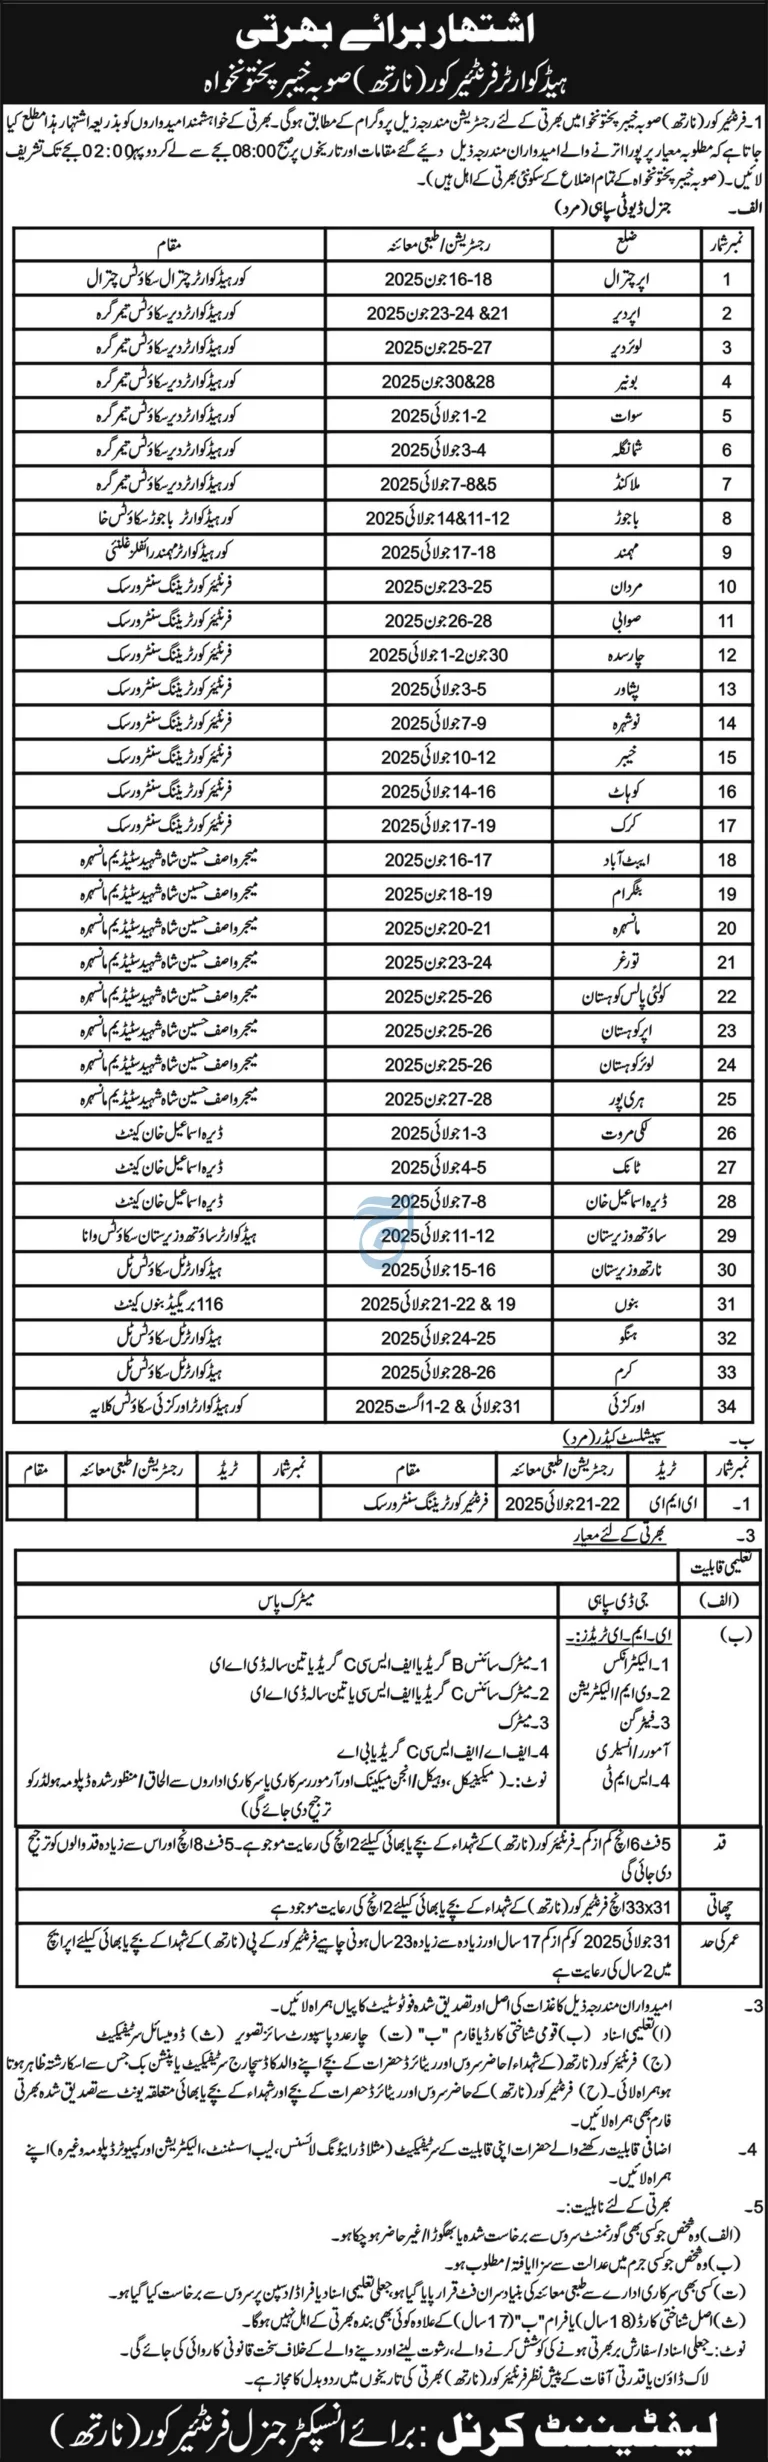 اشتہار برائے بھرتی
ہیڈکوارٹر فرنٹیئر کور (نارتھ) صوبہ خیبر پختونخواہ
1۔ فرنٹیئر کور (نارتھ) صوبہ خیبر پختونخوا میں بھرتی کے لئے رجسٹریشن مندرجہ ذیل پروگرام کے مطابق ہوگی۔ بھرتی کے خواہشمند امیدواروں کو بذریعہ اشتہار ہذا مطلع کیا
جاتا ہے کہ مطلوبہ معیار پر پورا اترنے والے امیدواران مندرجہ ذیل دیئے گئے مقامات اور تاریخوں پر صبح 08:00 بجے سے لے کر دوپہر 02:00 بجے تک تشریف
لائیں۔ (صوبہ خیبر پختونخواہ کے تمام اضلاع کے سکونتی بھرتی کے اہل ہیں)۔
الف۔ جنرل ڈیوٹی سپاہی (مرد)
نمبر شمار ضلع رجسٹریشن/طبی معائنہ مقام
1 اپر چترال 16-18 جون 2025 کور ہیڈکوارٹر چترال سکاؤٹس چترال
2 اپر دیر 21& 23-24 جون 2025 کور ہیڈکوارٹر دیر سکاؤٹس تیمرگرہ
3 لوئر دیر 25-27 جون 2025 کور ہیڈکوارٹر دیر سکاؤٹس تیمرگرہ
4 بونیر 28&30 جون 2025 کور ہیڈکوارٹر دیر سکاؤٹس تیمرگرہ
5 سوات 1-2 جولائی 2025 کور ہیڈکوارٹر دیر سکاؤٹس تیمرگرہ
6 شانگلہ 3-4 جولائی 2025 کور ہیڈکوارٹر دیر سکاؤٹس تیمرگرہ
7 ملاکنڈ 5&7-8 جولائی 2025 کور ہیڈکوارٹر دیر سکاؤٹس تیمرگرہ
8 باجوڑ 11-12&14 جولائی 2025 کور ہیڈکوارٹر باجوڑ سکاؤٹس خا
9 مہمند 17-18 جولائی 2025 کور ہیڈکوارٹر مہمند رائفلز غلنئی
10 مردان 23-25 جون 2025 فرنٹیئر کور ٹریننگ سنٹر ورسک
11 صوابی 26-28 جون 2025 فرنٹیئر کور ٹریننگ سنٹر ورسک
12 چارسدہ 30 جون 1-2 جولائی 2025 فرنٹیئر کور ٹریننگ سنٹر ورسک
13 پشاور 3-5 جولائی 2025 فرنٹیئر کور ٹریننگ سنٹر ورسک
14 نوشہرہ 7-9 جولائی 2025 فرنٹیئر کور ٹریننگ سنٹر ورسک
15 خیبر 10-12 جولائی 2025 فرنٹیئر کور ٹریننگ سنٹر ورسک
16 کوہاٹ 14-16 جولائی 2025 فرنٹیئر کور ٹریننگ سنٹر ورسک
17 کرک 17-19 جولائی 2025 فرنٹیئر کور ٹریننگ سنٹر ورسک
18 ایبٹ آباد 16-17 جون 2025 میجر واصف حسین شاہ شہید سٹیڈیم مانسہرہ
19 بٹگرام 18-19 جون 2025 میجر واصف حسین شاہ شہید سٹیڈیم مانسہرہ
20 مانسہرہ 20-21 جون 2025 میجر واصف حسین شاہ شہید سٹیڈیم مانسہرہ
21 تورغر 23-24 جون 2025 میجر واصف حسین شاہ شہید سٹیڈیم مانسہرہ
22 کولئی پالس کوہستان 25-26 جون 2025 میجر واصف حسین شاہ شہید سٹیڈیم مانسہرہ
23 اپر کوہستان 25-26 جون 2025 میجر واصف حسین شاہ شہید سٹیڈیم مانسہرہ
24 لوئر کوہستان 25-26 جون 2025 میجر واصف حسین شاہ شہید سٹیڈیم مانسہرہ
25 ہری پور 27-28 جون 2025 میجر واصف حسین شاہ شہید سٹیڈیم مانسہرہ
26 لکی مروت 1-3 جولائی 2025 ڈیرہ اسماعیل خان کینٹ
27 ٹانک 4-5 جولائی 2025 ڈیرہ اسماعیل خان کینٹ
28 ڈیرہ اسماعیل خان 7-8 جولائی 2025 ڈیرہ اسماعیل خان کینٹ
29 ساؤتھ وزیرستان 11-12 جولائی 2025 ہیڈکوارٹر ساؤتھ وزیرستان سکاؤٹس وانا
30 نارتھ وزیرستان 15-16 جولائی 2025 ہیڈکوارٹر ٹل سکاؤٹس ٹل
31 بنوں 19 & 21-22 جولائی 2025 116 بریگیڈ بنوں کینٹ
32 ہنگو 24-25 جولائی 2025 ہیڈکوارٹر ٹل سکاؤٹس ٹل
33 کرم 26-28 جولائی 2025 ہیڈکوارٹر ٹل سکاؤٹس ٹل
34 اورکزئی 31 جولائی & 1-2 اگست 2025 کور ہیڈکوارٹر اورکزئی سکاؤٹس کلایہ
ب۔ سپیشلسٹ کیڈر (مرد)
نمبر شمار ٹریڈ رجسٹریشن/طبی معائنہ مقام نمبر شمار ٹریڈ رجسٹریشن/طبی معائنہ مقام
1۔ ای ایم ای 21-22 جولائی 2025 فرنٹیئر کور ٹریننگ سنٹر ورسک
3۔ بھرتی کے لئے معیار
تعلیمی قابلیت
(الف) جی ڈی سپاہی میٹرک پاس
(ب) ای۔ایم۔ای ٹریڈز:۔
1۔ الیکٹرانکس 1۔ میٹرک سائنس B گریڈ یا ایف ایس سی C گریڈ یا تین سالہ ڈی اے ای
2۔ وی ایم/الیکٹریشن 2۔ میٹرک سائنس C گریڈ یا ایف ایس سی یا تین سالہ ڈی اے ای
3۔ فیٹر گن 3۔ میٹرک
آمورر/انسلری 4۔ ایف اے/ایف ایس سی C گریڈ یا بی اے
4۔ ایس ایم ٹی نوٹ:۔ (میکینیکل، وہیکل/انجن میکینک اور آرمورر سرکاری یا سرکاری اداروں سے الحاق/منظور شدہ ڈپلومہ ہولڈر کو
ترجیح دی جائے گی)
قد 5فٹ 6 انچ کم از کم۔ فرنٹیئر کور (نارتھ) کے شہداء کے بچے یا بھائی کیلئے 2 انچ کی رعایت موجود ہے۔ 5فٹ 8 انچ اور اس سے زیادہ قد والوں کو ترجیح
دی جائی گی
چھاتی 33x31 انچ فرنٹیئر کور (نارتھ) کے شہداء کے بچے یا بھائی کیلئے 2 انچ کی رعایت موجود ہے
عمر کی حد 31 جولائی 2025 کو کم از کم 17 سال اور زیادہ سے زیادہ 23 سال ہونی چاہیے فرنٹیئر کور کے پی (نارتھ) کے شہدا کے بچے یا بھائی کیلئے اپر ایج
میں 2 سال کی رعایت ہے
3۔ امیدواران مندرجہ ذیل کاغذات کی اصل اور تصدیق شدہ فوٹو سٹیٹ کاپیاں ہمراہ لائیں۔
(ا) تعلیمی اسناد (ب) قومی شناختی کارڈ یا فارم "ب" (ت) چار عدد پاسپورٹ سائز تصویر (ث) ڈومیسائل سرٹیفکیٹ
(ج) فرنٹیئر کور (نارتھ) کے شہداء/حاضر سروس اور ریٹائرڈ حضرات کے بچے اپنے والد کا ڈسچارج سرٹیفکیٹ یا پنشن بک جس سے اسکا رشتہ ظاہر ہوتا
ہو ہمراہ لائی۔ (ح) فرنٹیئر کور (نارتھ) کے حاضر سروس اور ریٹائرڈ حضرات کے بچے اور شہداء کے بچے یا بھائی متعلقہ یونٹ سے تصدیق شدہ بھرتی
فارم بھی ہمراہ لائیں۔
4۔ اضافی قابلیت رکھنے والے حضرات اپنی قابلیت کے سرٹیفکیٹ (مثلاً ڈرائیونگ لائسنس، لیب اسسٹنٹ، الیکٹریشن اور کمپیوٹر ڈپلومہ وغیرہ) اپنے
ہمراہ لائیں۔
5۔ بھرتی کے لئے ناہلیت:۔
(الف) وہ شخص جو کسی بھی گورنمنٹ سروس سے برخاست شدہ یا بھگوڑا/غیر حاضر ہو چکا ہو۔
(ب) وہ شخص جو کسی جرم میں عدالت سے سزا یافتہ/مطلوب ہو۔
(ت) کسی بھی سرکاری ادارے سے طبی معائنہ کی بنیاد سران فٹ قرار پایا گیا ہو، جعلی تعلیمی اسناد یا فراڈ/ڈسپلن پر سروس سے برخاست کیا گیا ہو۔
(ث) اصل شناختی کارڈ (18 سال) یا فرام "ب" (17 سال) کے علاوہ کوئی بھی بندہ بھرتی کے اہل نہیں ہوگا۔
نوٹ:۔ جعلی اسناد/سفارش پر بھرتی ہونے کی کوشش کرنے والے، رشوت لینے اور دینے والے کے خلاف سخت قانونی کاروائی کی جائے گی۔
لاک ڈاؤن یا قدرتی آفات کے پیش نظر فرنٹیئر کور (نارتھ) بھرتی کی تاریخوں میں ردوبدل کا مجاز ہے۔
لیفٹیننٹ کرنل : برائے انسپکٹر جنرل فرنٹیئر کور (نارتھ)